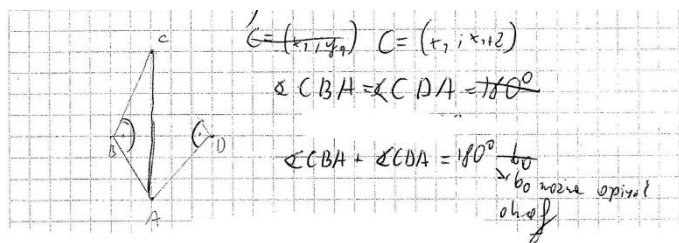 C = (x₁, y₁) C = (x₁; x₁+2)
∢CBA = ∢CDA = 180°
∢CBA + ∢CDA = 180° bo
bo można opisać
okrąg
C
B
D
A